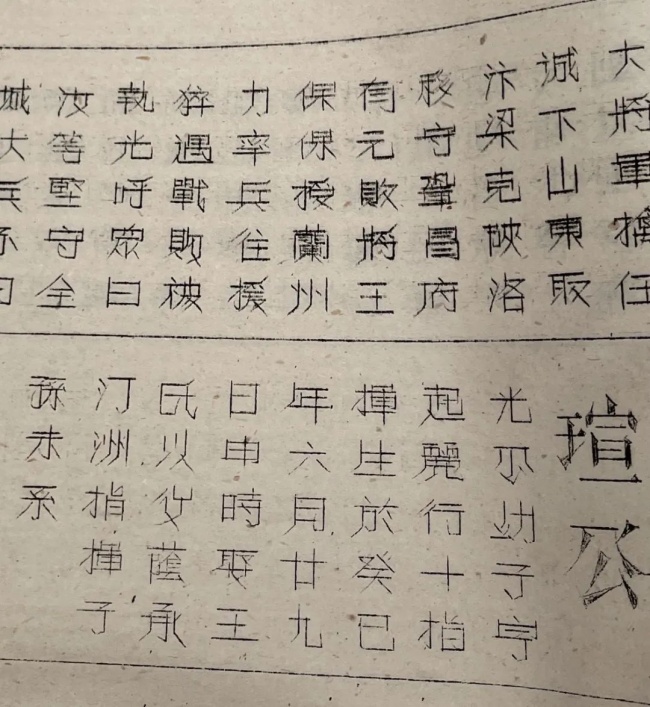 大將軍擒任
诚下山東取
汴梁克破洛
移守鞏昌府
有元敗將王
保保授蘭州
力率兵往援
猝遇戰敗被
執光呼眾曰
汝等堅守全
城大兵不日
瑄公
光公幼子字
起麗行十指
揮生於癸巳
年六月廿九
日申時娶王
氏以父蔭承
汀洲指揮子
孫未系